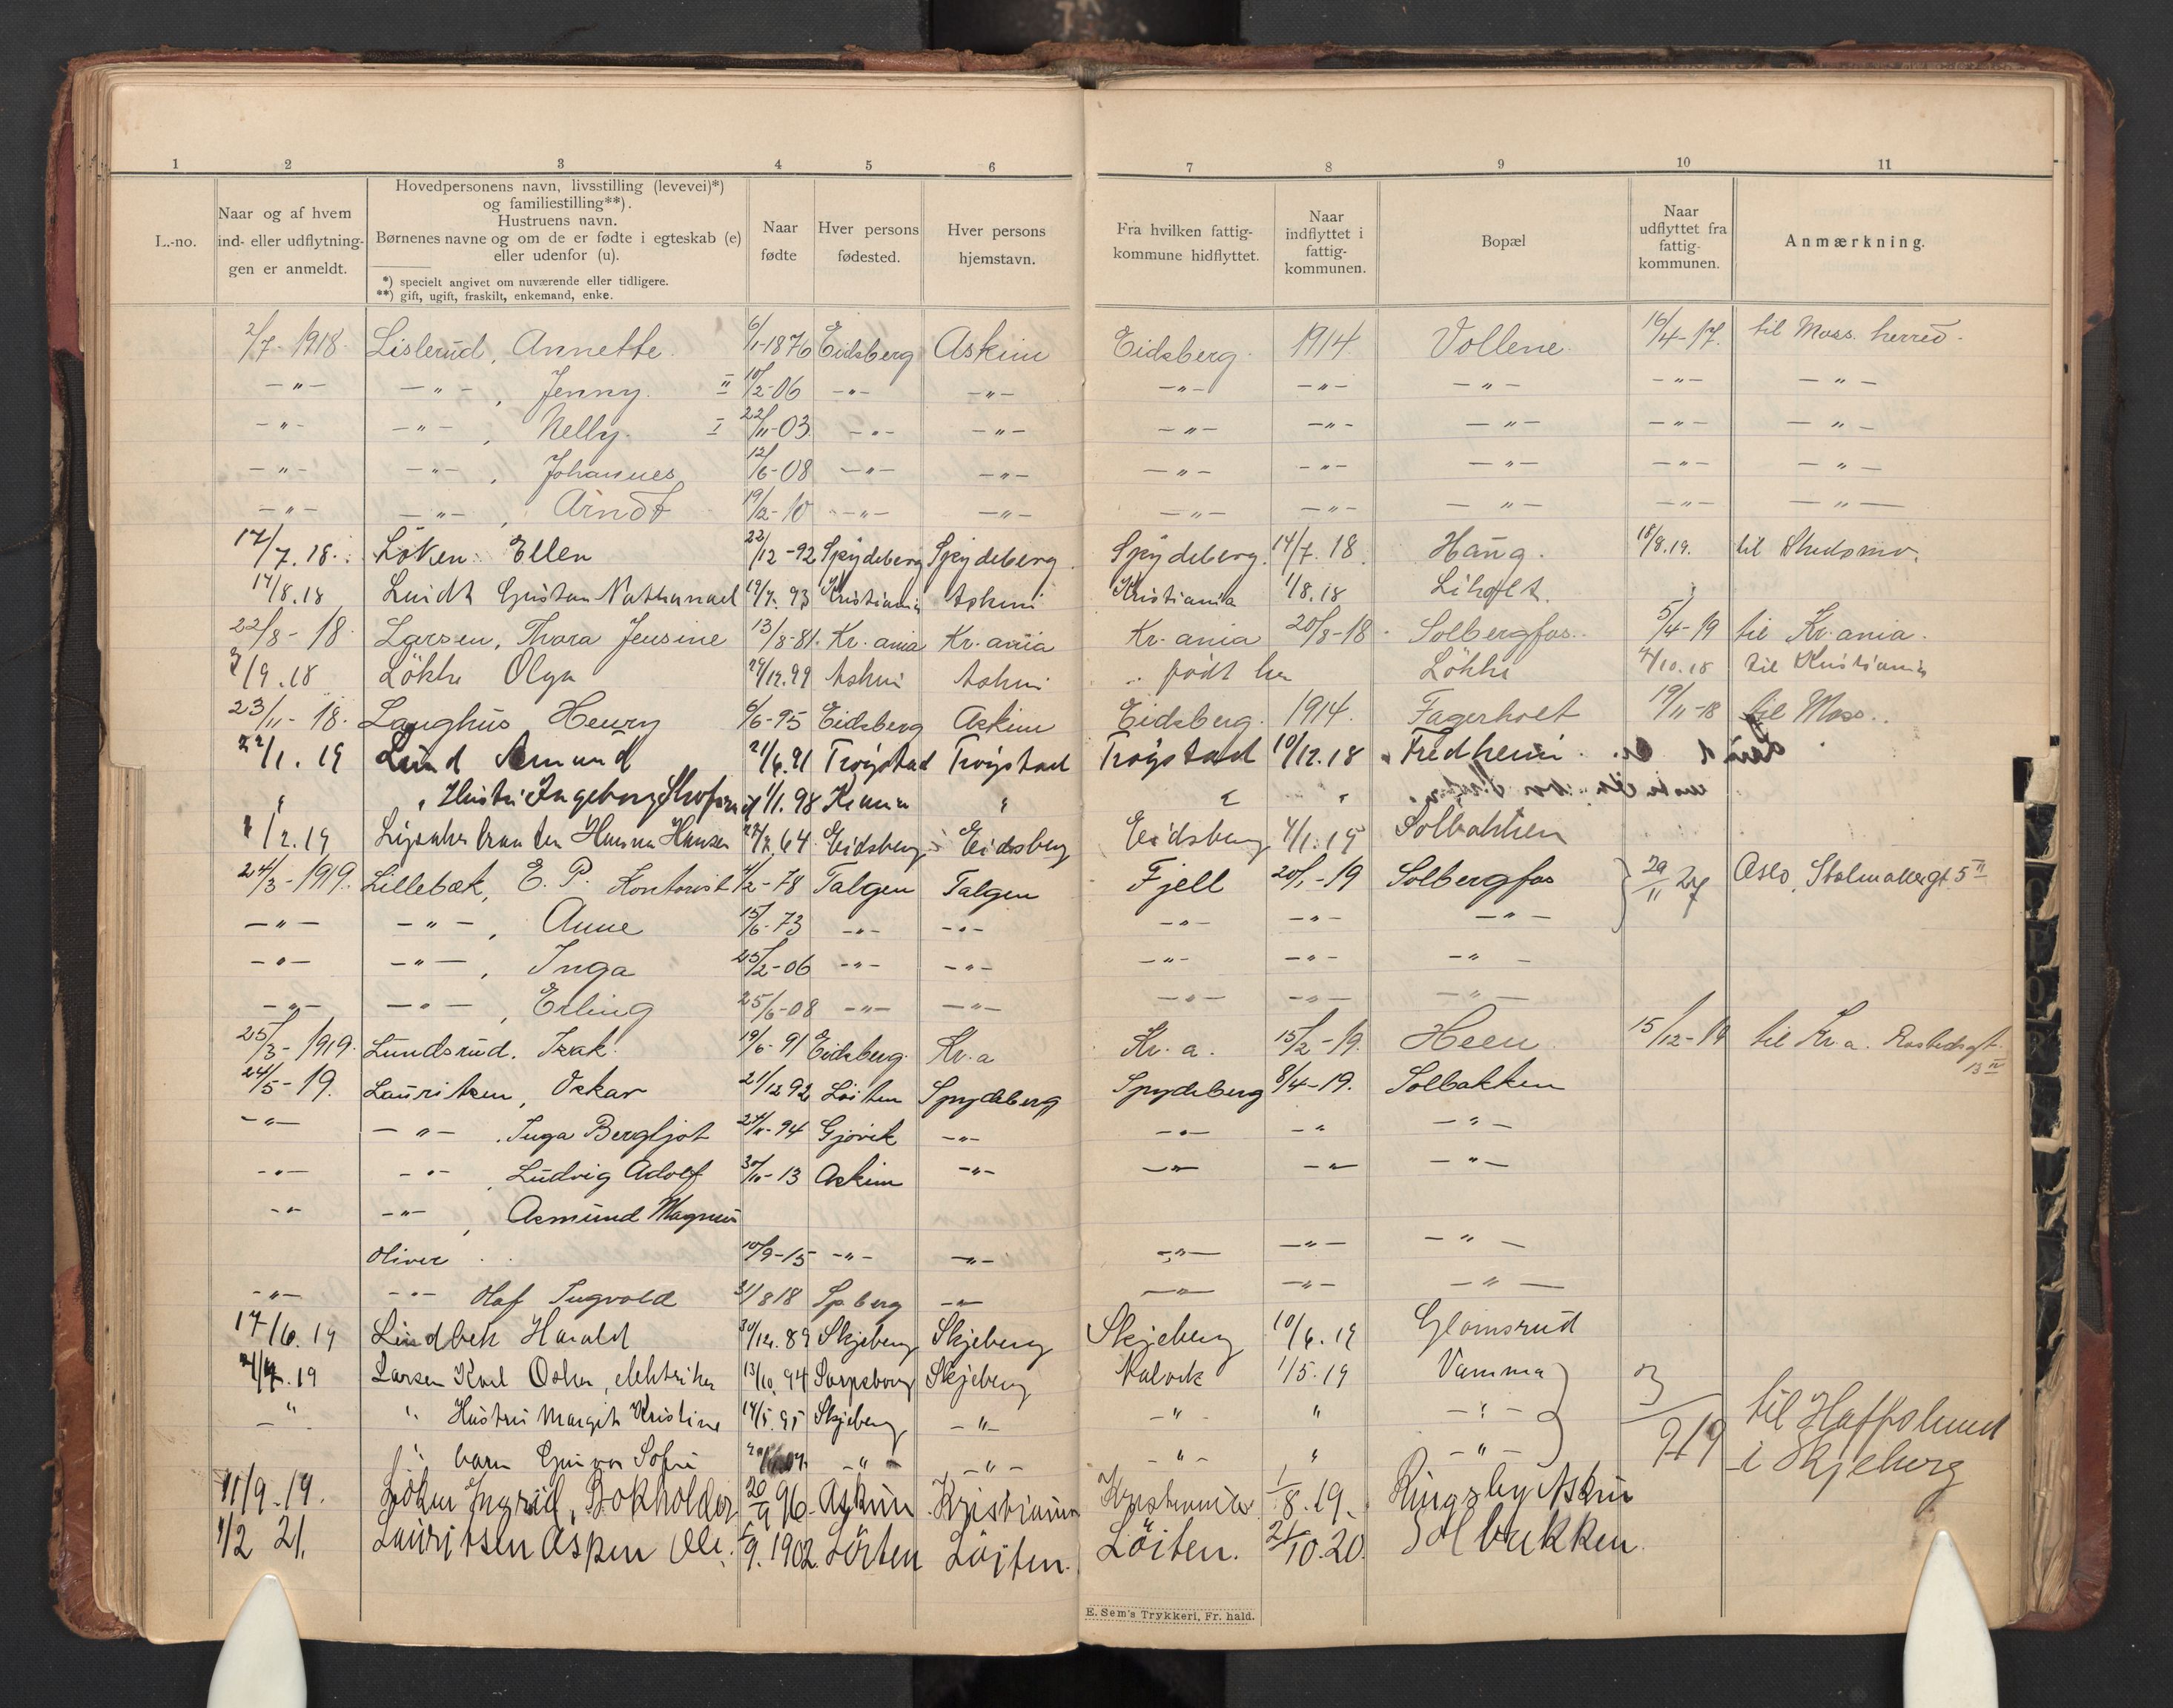 1 2 3 4 5 6 7 8 9 10 11
L.-no. | Naar og af hvem ind- eller udflytningen er anmeldt. | Hovedpersonens navn, livsstilling (levevei)*) og familiestilling**). Hustruens navn. Børnenes navne og om de er fødte i egteskab (e) eller udenfor (u). *) specielt angivet om nuværende eller tidligere. **) gift, ugift, fraskilt, enkemand, enke. | Naar fødte | Hver persons fødested. | Hver persons hjemstavn. | Fra hvilken fattigkommune hidflyttet. | Naar indflyttet i fattigkommunen. | Bopæl | Naar udflyttet fra fattigkommunen. | Anmærkning.
2/7-1918. Lislerud, Annette. 6/1-1876 Eidsberg Askim Eidsberg. 1914. Vollene. 16/4-17. til Moss herred.
-"- -"-, Jenny. II 10/2-06 -"- -"- -"- -"- -"- -"- -"-
-"- -"-, Nelly. I 22/11-03 -"- -"- -"- -"- -"- -"- -"-
-"- -"-, Johannes 12/6-08 -"- -"- -"- -"- -"- -"- -"-
-"- -"-, Arndt 19/2-10 -"- -"- -"- -"- -"- -"- -"-
17/7.18. Løken Ellen 22/12-92 Spydeberg Spydeberg. Spydeberg. 14/7.18. Haug. 18/8.19. til
14/8.18 Lindt Gustav Nathanael 19/7.93 Kristiania Askim Kristiania 1/8.18 Liholt.
22/8-18. Larsen, Thora Jensine 13/8-81. Kr.ania Kr.ania Kr.ania 20/8-18. Solbergfos. 5/4-19 til Kr.ania.
3/9.18 Løkke Olga 24/12.99 Askim Askim født her Løkke 4/10.18 til Kristiania
23/11-18. Langhus, Henry 6/6-95 Eidsberg Askim Eidsberg. 1914. Fagerholt 19/11-18 til Moss.
22/1.19 Lund Amund 21/6.91 Trøgstad Trøgstad Trøgstad 10/12.18 Fredheim
" " Hustru Ingeborg 1/1.98 " " "
1/2.19 Hanna Hansen 64 Eidsberg Eidsberg Eidsberg 4/1.19 Solbakken
24/3-1919. Lillebæk, E. P. Kontorist 1/2-78 Talgen Talgen Fjell 20/1-19 Solbergfos } 29/11 27 Oslo, Stolmakergt. 5 II
-"- -"-, Anne 15/6-73 -"- -"- -"- -"- -"-
-"- -"-, Inga 25/2-06 -"- -"- -"- -"- -"-
-"- -"-, Erling 25/6-08 -"- -"- -"- -"- -"-
25/3-1919. Lundsrud. Isak. 19/6-91 Eidsberg. Kr.a Kr.a. 15/2-19. Heen 15/12-19 til Kr.a. 13 IV
24/5-19. Lauritsen, Oskar 21/12 92 Løiten Spydeberg Spydeberg 8/4-19. Solbakken
-"- -"-, Inga Bergljot 24/11-94 Gjøvik -"- -"- -"- -"-
-"- -"-, Ludvig Adolf 30/11-13 Askim -"- -"- -"- -"-
-"- -"-, Asmund Magnus
Oliver 10/9-15 -"- -"- -"- -"- -"-
-"- -"- Olaf Ingvald 31/8 18 Sp.berg -"- -"- -"- -"-
17/6.19 Lindbek Harald 30/12.89 Skjeberg Skjeberg Skjeberg 10/6.19 Glomsrud
4/7.19 Larsen Karl Oskar, elektriker 13/10.94 Sarpsborg Skjeberg 1/5.19 Vamma } 3/9 19 til Hafslund i Skjeberg
" " Hustru Margit Kristine 14/5.95 Skjeberg -"- -"- " -"-
" barn Gunvor Sofie -"- -"- -"- " -"-
11/9.19. Løken Ingrid, Bokholder 20/9 96. Askim Kristiania Kristiania 1/8.19. Ringsby Askim
1/2 21. Lauritsen Aspen Ole. 9.1902. Løiten Løiten. Løiten. 21/10.20. Solbakken.
E. Sem's Trykkeri, Fr. hald.
N
O
P
Q
R